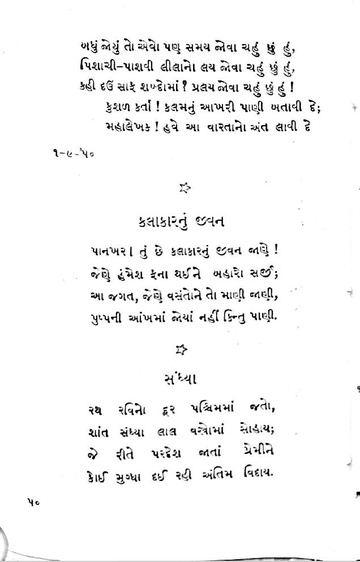 બધું જોયું તો એવો પણ સમય જોવા ચહું છું હું,
પિશાચી-પાશવી લીલાનો લય જોવા ચહું છું હું,
કહી દઉં સાફ શબ્દોમાં ? પ્રલય જોવા ચહું છું હું !
કુશળ કર્તા ! કલમનું આખરી પાણી બતાવી દે;
મહાલેખક ! હવે આ વારતાનો અંત લાવી દે
૧-૯-'૫૦
કલાકારનું જીવન
પાનખર ! તું છે કલાકારનું જીવન જાણે !
જેણે હંમેશ ફના થઈને બહારો સજી;
આ જગત, જેણે વસંતોને તો માણી જાણી,
પુષ્પની આંખમાં જોયાં નહીં કિન્તુ પાણી.
સંધ્યા
રથ રવિનો દૂર પશ્ચિમમાં જતો,
શાંત સંધ્યા લાલ વસ્ત્રોમાં સોહાય;
જે રીતે પરદેશ જાતાં પ્રેમીને
કોઈ મુગ્ધા દઈ રહી અંતિમ વિદાય.
૫૦